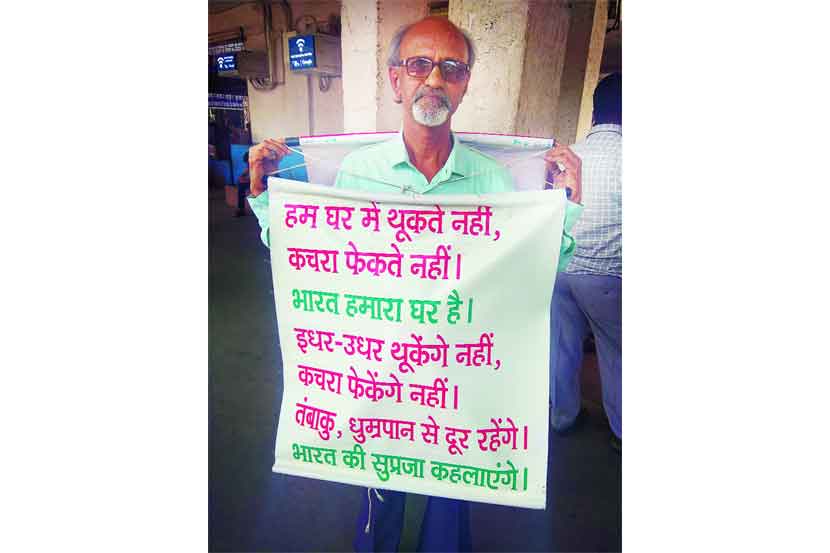 हम घर में थूकते नहीं,
कचरा फेकते नहीं।
भारत हमारा घर है।
इधर-उधर थूकेंगे नहीं,
कचरा फेकेंगे नहीं।
तंबाकु, धुम्रपान से दूर रहेंगे।
भारत की सुप्रजा कहलाएंगे।